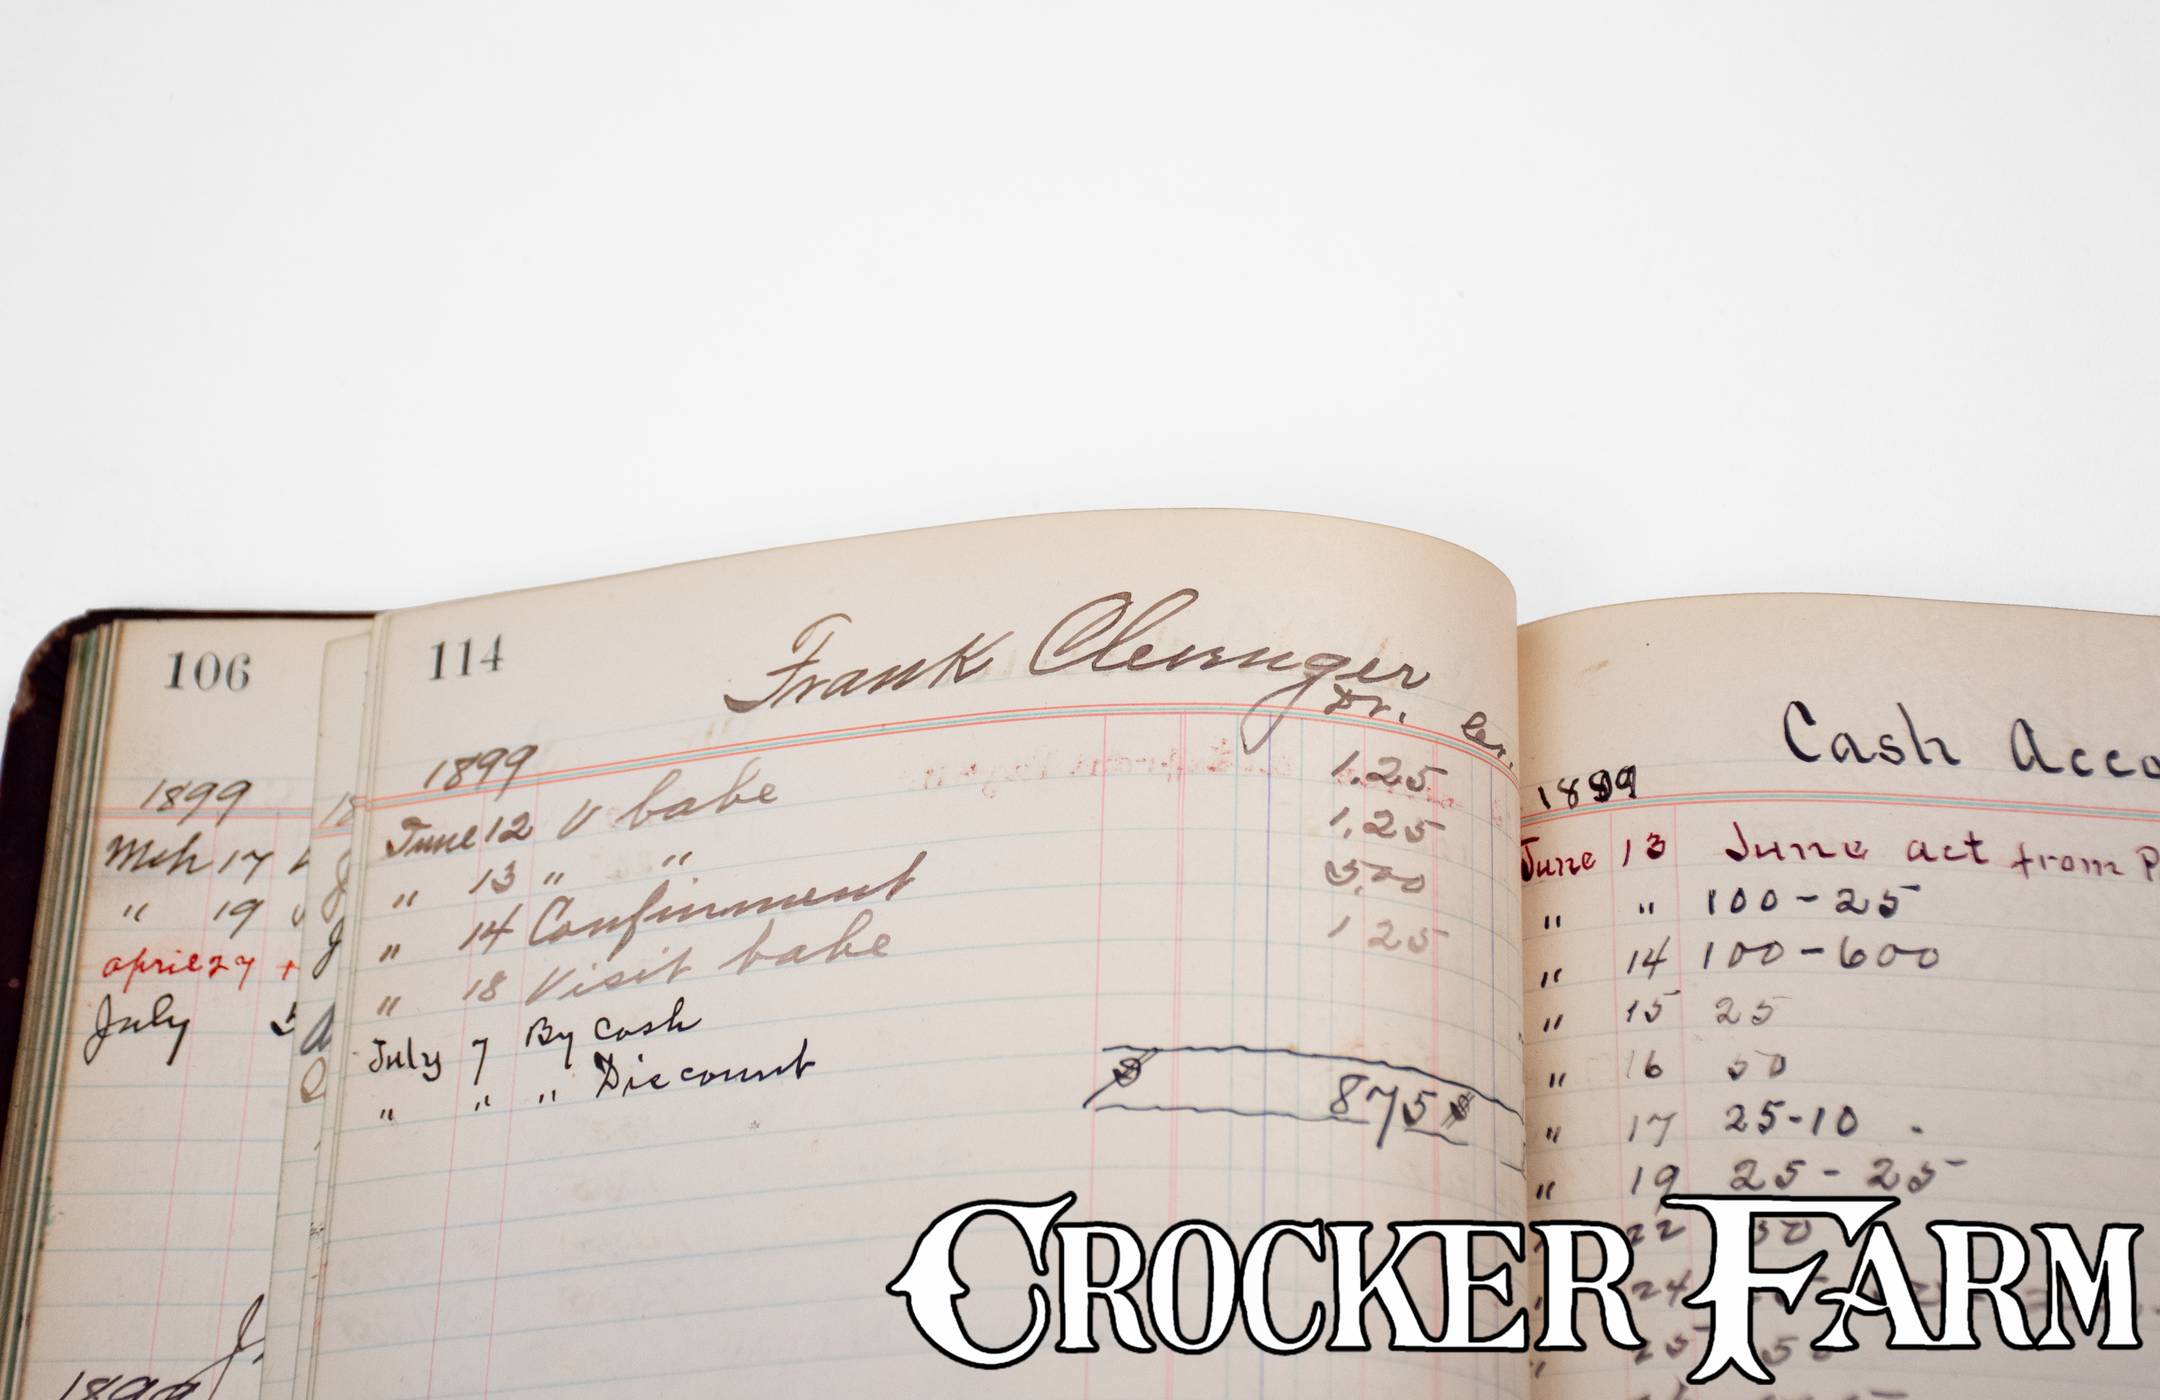 106
1899
Mch 17
" 19
april 27 +
July 5
J.
1899
114
Frank Clevenger
Dr. Cr.
1899
June 12 V babe 1.25
" 13 " " 1.25
" 14 Confinment 5.00
" 18 Visit babe 1 25
July 7 By Cash
" " " Discount
$ 875 $
Cash Acco
1899
June 13 June act from P
" " 100-25
" 14 100-600
" 15 25
" 16 50
" 17 25-10
" 19 25-25
22 50
24
25
CROCKER FARM